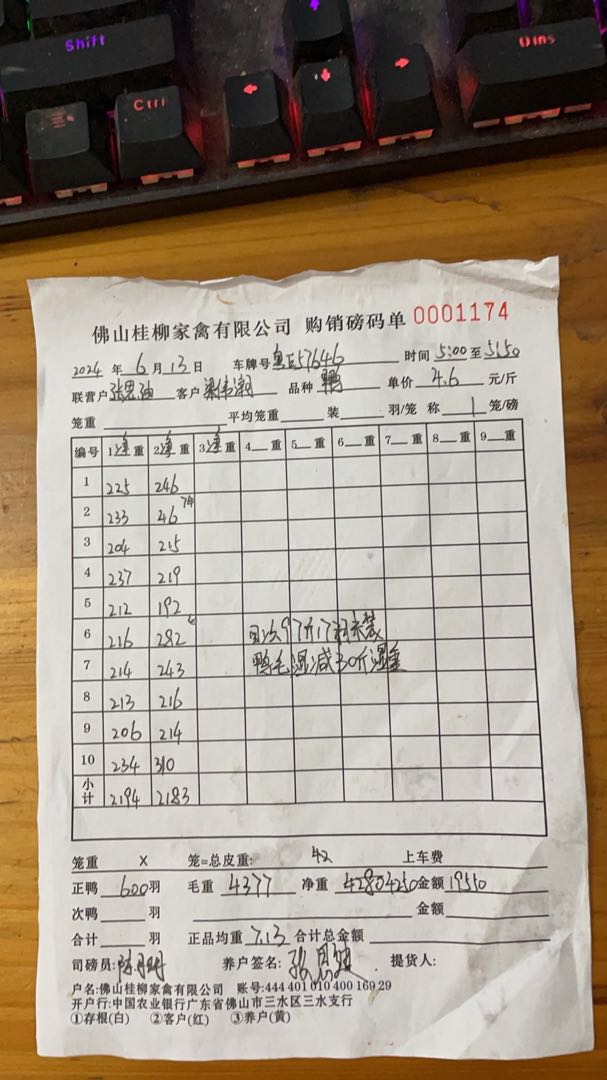 Shift
Ctrl
Ins
佛山桂柳家禽有限公司 购销磅码单 0001174
2024 年 6 月 13 日 车牌号 57646 时间 5:00 至 5:50
联营户 张思 客户 梁伟潮 品种 鸭 单价 4.6 元/斤
笼重 平均笼重 装 羽/笼 称 1 笼/磅
编号 1 净 重 2 净 重 3 净 重 4 重 5 重 6 重 7 重 8 重 9 重
1 225 246
2 233 46
3 204 215
4 237 219
5 212 192
6 216 282
7 214 243
鸭毛湿减30斤
8 213 216
9 206 214
10 234 310
小计 2194 2183
笼重 X 笼=总皮重: 42 上车费
正鸭 600 羽 毛重 4377 净重 4280 4250 金额 19550
次鸭 羽 金额
合计 羽 正品均重 7.13 合计总金额
司磅员: 养户签名: 张思 提货人:
户名:佛山桂柳家禽有限公司 账号:444 401 010 400 169 29
开户行:中国农业银行广东省佛山市三水区三水支行
①存根(白) ②客户(红) ③养户(黄)